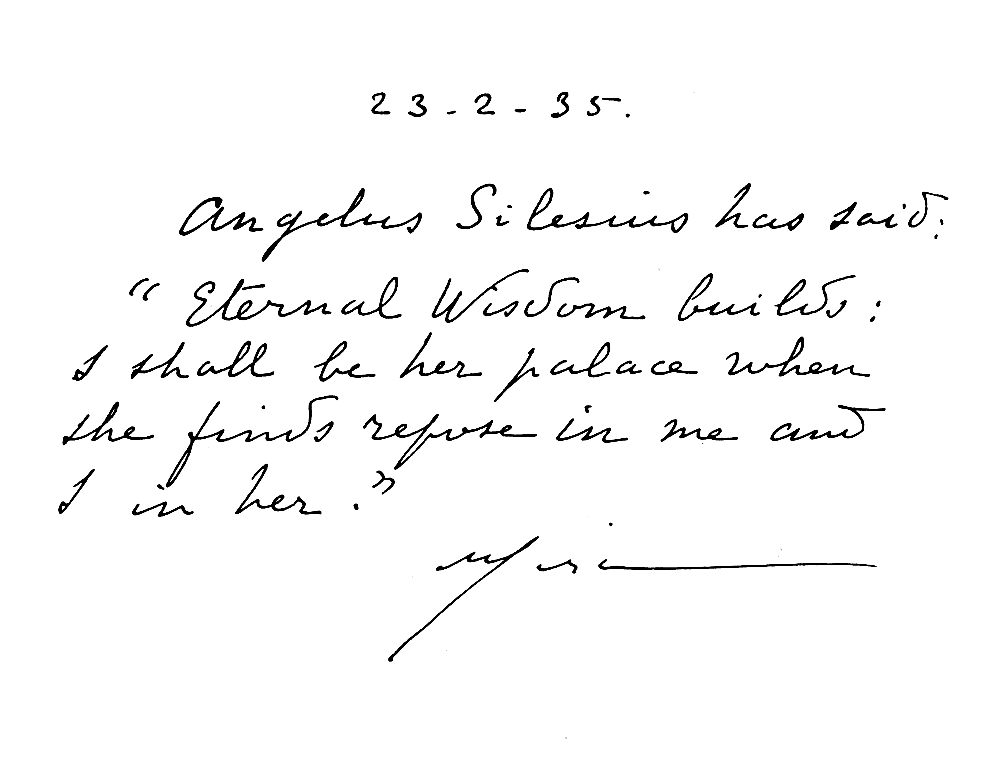 23-2-35.
Angelus Silesius has said:
“Eternal Wisdom builds:
I shall be her palace when
she finds repose in me and
I in her.”